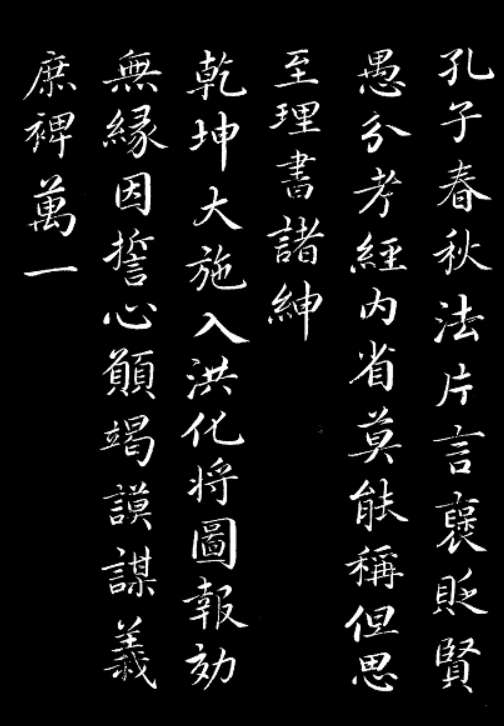 孔子春秋法片言襃貶賢
愚分考經内省莫能稱但思
至理書諸紳
乾坤大施入洪化将圖報効
無縁因誓心願竭謨謀義
庶裨萬一